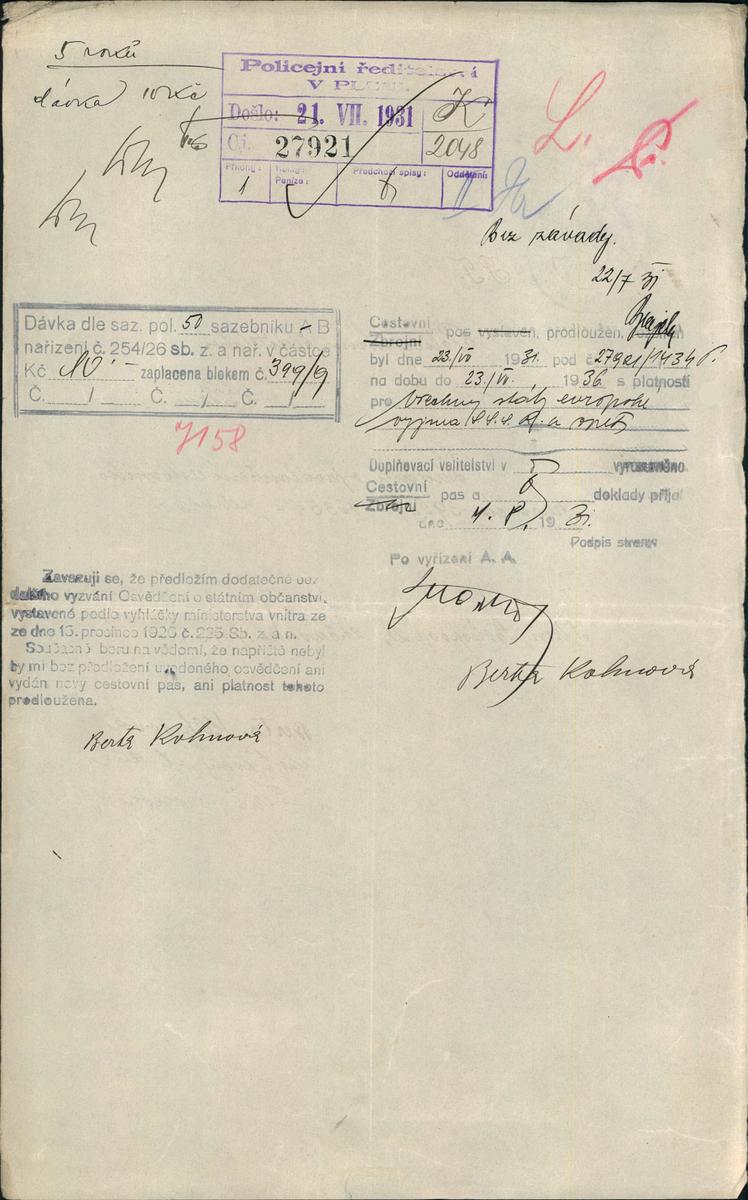 5 roků
dávka 10 Kč
Policejní ředitelství
V PLZNI
Došlo: 21. VII. 1931 K
Č.j. 27921 2048
Přílohy: Peníze: Předchozí spisy: Oddělení:
1
L.
Bez závady.
22/7 31
Dávka dle saz. pol. 50 sazebníku A B
nařízení č. 254/26 sb. z. a nař. v částce
Kč 10.- zaplacena blokem č. 399/9
Č. / Č. / Č. /
7158
Cestovní
Zbrojní pas vystaven, prodloužen,
byl dne 23/VII 1931 pod č 27921/1434
na dobu do 23/VII 1936 s platností
pro všechny státy evropské
vyjma S.S.S.R. a zpět
Doplňovací velitelství v vyrozuměno
Cestovní
Zbrojní pas a doklady přijal
dne 1. 8. 1931.
Podpis strany
Po vyřízení A. A.
Berta Kohnová
Zavazuji se, že předložím dodatečně bez
dalšího vyzvání Osvědčení o státním občanství,
vystavené podle vyhlášky ministerstva vnitra ze
ze dne 15. prosince 1926 č. 225 Sb. z. a n.
Současně beru na vědomí, že napříště nebyl
by mi bez předložení uvedeného osvědčení ani
vydán nový cestovní pas, ani platnost tohoto
predloužena.
Berta Kohnová